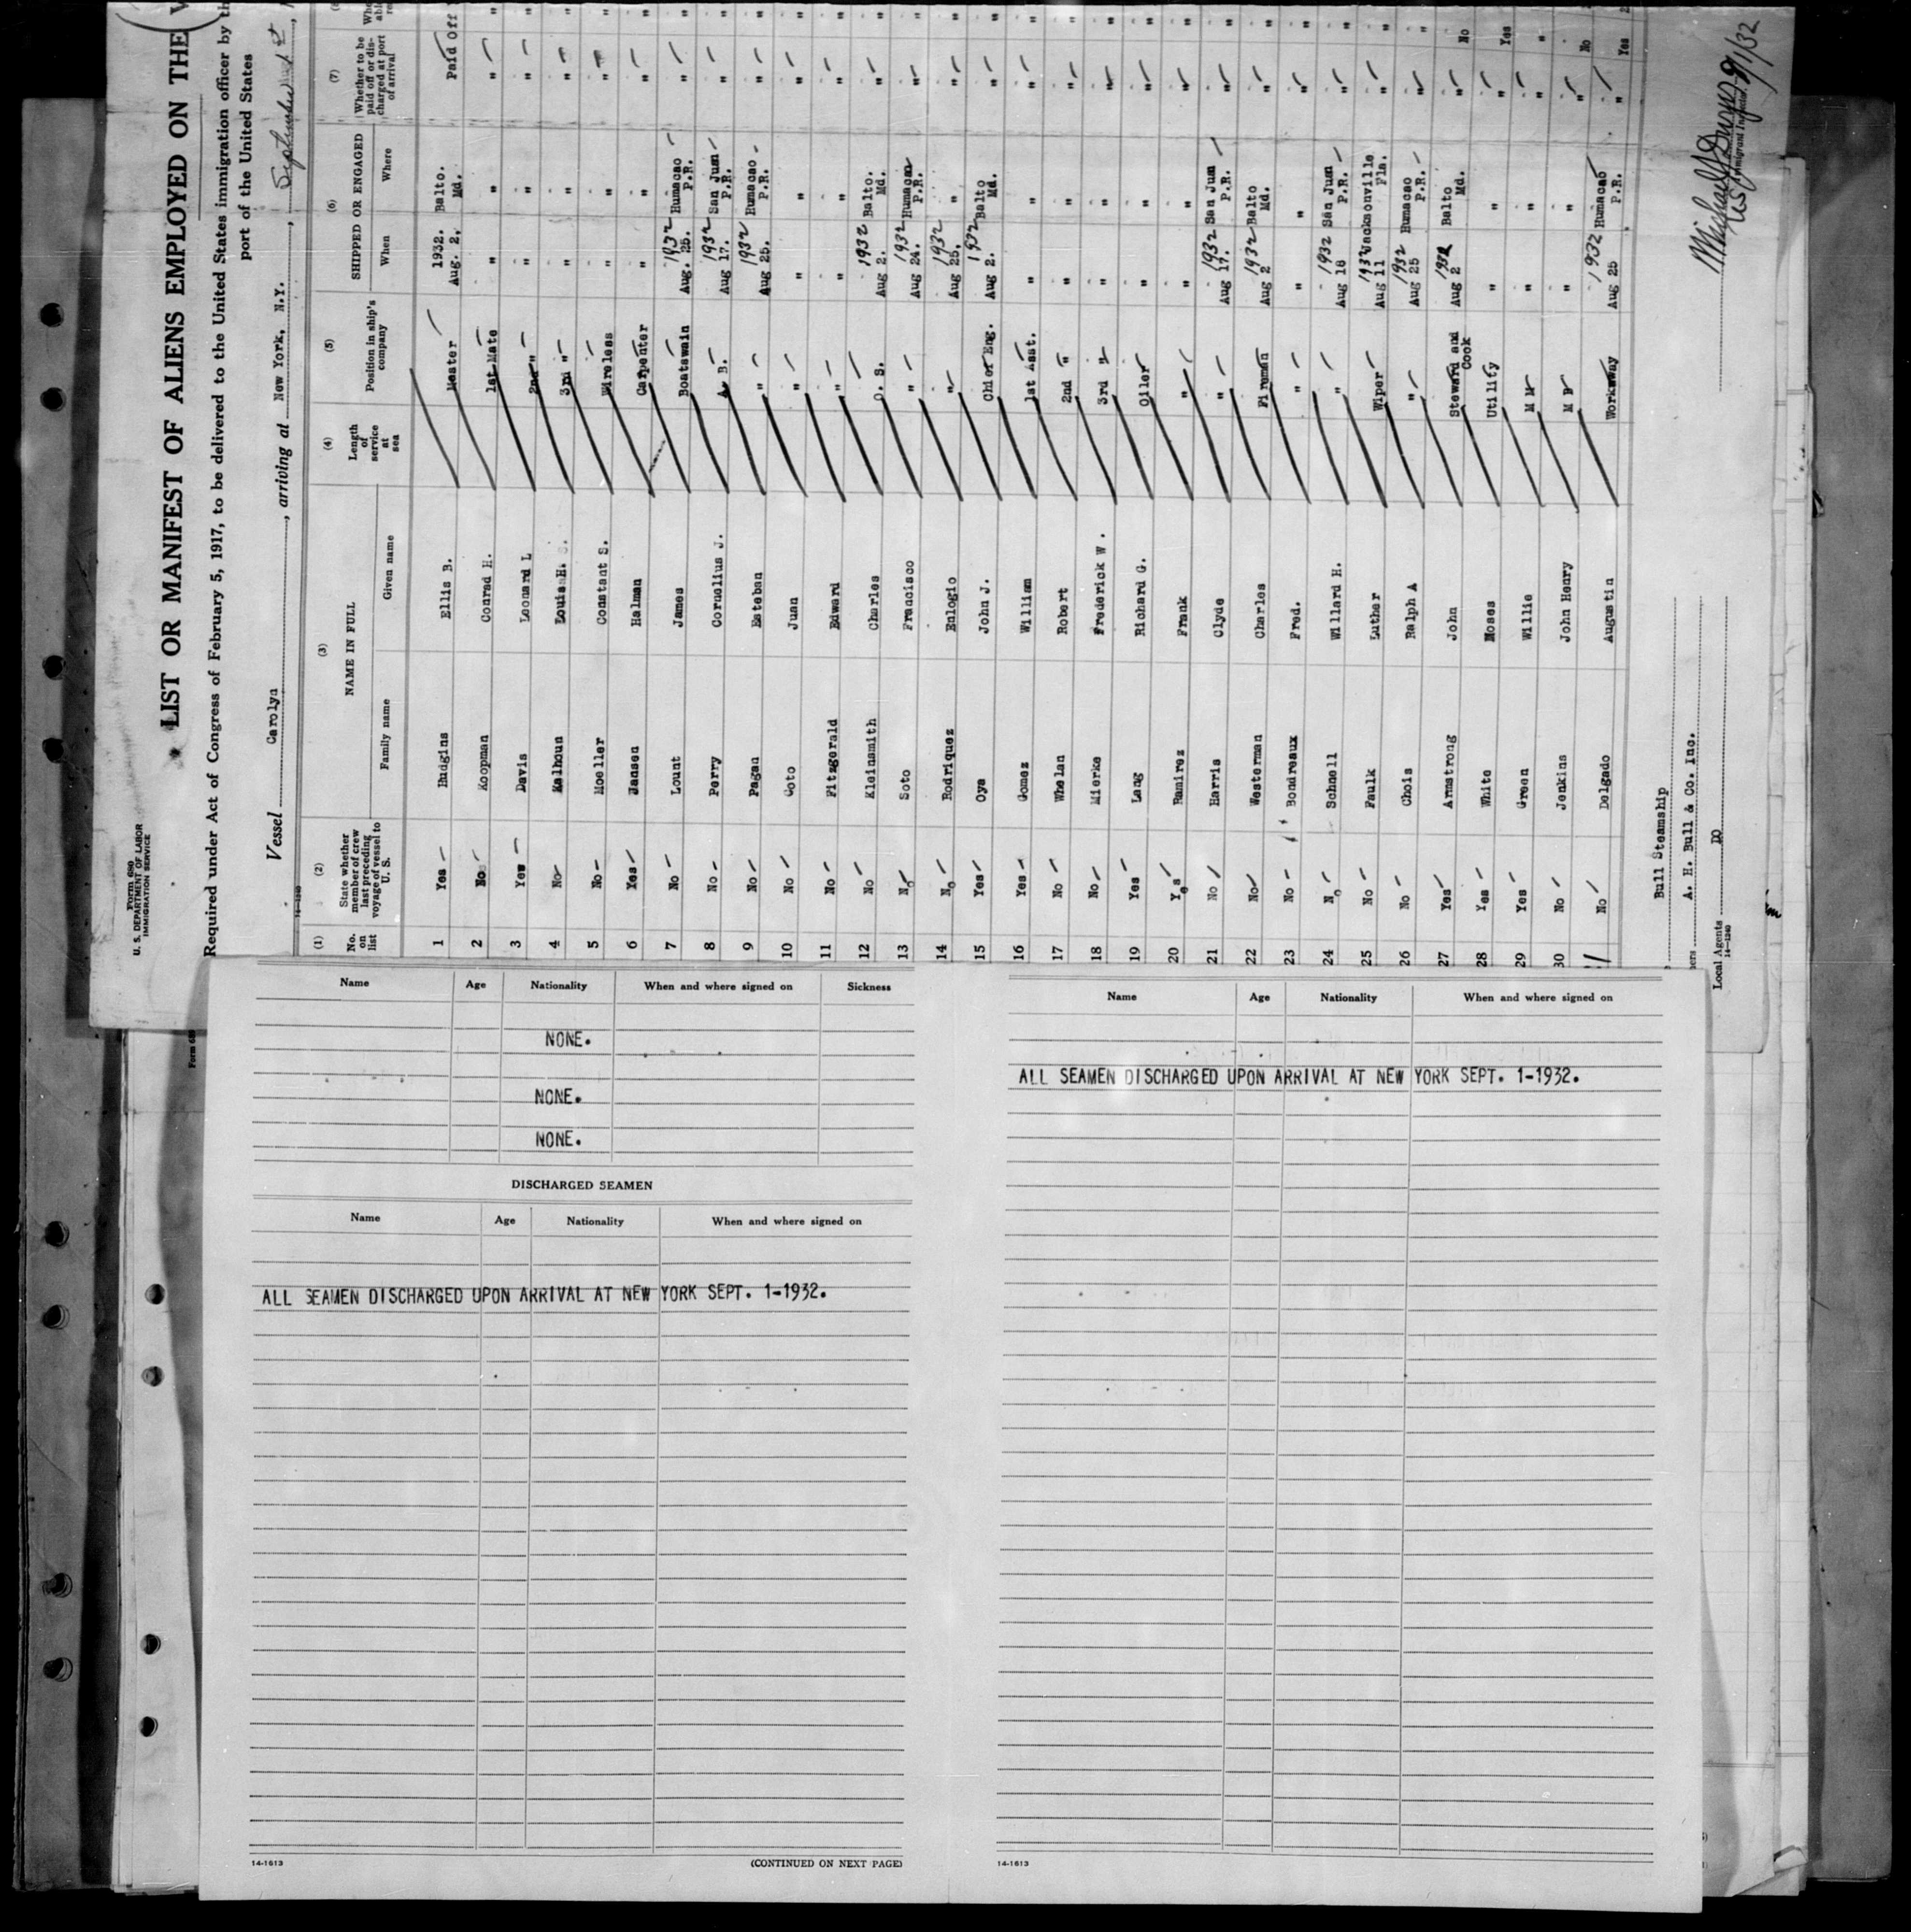 Form 680
U. S. DEPARTMENT OF LABOR
IMMIGRATION SERVICE
LIST OR MANIFEST OF ALIENS EMPLOYED ON THE
Required under Act of Congress of February 5, 1917, to be delivered to the United States immigration officer by th
port of the United States
Vessel Carolyn, arriving at New York, N.Y., September 1st
(1) (2) (3) (4) (5) (6) (7)
No. on list
State whether member of crew last preceding voyage of vessel to U. S.
NAME IN FULL
Family name Given name
Length of service at sea
Position in ship's company
SHIPPED OR ENGAGED
When Where
Whether to be paid off or discharged at port of arrival
1 Yes Hudgins Ellis B. Master 1932. Aug. 2. Balto. Md. Paid Off
2 No Koopman Conrad H. 1st Mate " " "
3 Yes Davis Leonard L 2nd " " " "
4 No Kalhoun Louis H. S. 3rd " " " "
5 No Moeller Constant S. Wireless " " "
6 Yes Jansen Halman Carpenter " " "
7 No Lount James Boatswain 1932 Aug. 25. Humacao P.R. "
8 No Perry Cornelius J. A. B. 1932 Aug 17. San Juan P.R. "
9 No Pagan Esteban " 1932 Aug 25. Humacao P.R. "
10 No Coto Juan " " " "
11 No Fitzgerald Edward " " " "
12 No Kleinsmith Charles O. S. 1932 Aug 2. Balto. Md. "
13 No Soto Francisco " 1932 Aug 24. Humacao P.R. "
14 No Rodriquez Eulogio " 1932 Aug 25. " "
15 Yes Oye John J. Chief Eng. 1932 Aug 2. Balto Md. "
16 Yes Gomez William 1st Asst. " " "
17 No Whelan Robert 2nd " " " "
18 No Mierke Frederick W. 3rd " " " "
19 Yes Lang Richard G. Oiler " " "
20 Yes Ramirez Frank " " " "
21 No Harris Clyde " 1932 Aug 17. San Juan P.R. "
22 No Westerman Charles Fireman 1932 Aug 2 Balto Md. "
23 No Bondreaux Fred. " " " "
24 No Schnell Willard H. " 1932 Aug 18 San Juan P.R. "
25 No Paulk Luther Wiper 1932 Aug 11 Jacksonville Fla. "
26 No Chois Ralph A " 1932 Aug 25 Humacao P.R. "
27 Yes Armstrong John Steward and Cook 1932 Aug 2 Balto Md. " No
28 Yes White Moses Utility " " " Yes
29 Yes Green Willie M M " " " "
30 No Jenkins John Henry M B " " " No
No Delgado Augustin Workaway 1932 Aug 25 Humacao P.R. " Yes
Bull Steamship
A. H. Bull & Co. Inc.
Local Agents DO
14—1240
Immigrant Inspector
9/1/32
Name Age Nationality When and where signed on Sickness
NONE.
NONE.
NONE.
DISCHARGED SEAMEN
Name Age Nationality When and where signed on
ALL SEAMEN DISCHARGED UPON ARRIVAL AT NEW YORK SEPT. 1-1932.
14-1613 (CONTINUED ON NEXT PAGE)
Name Age Nationality When and where signed on
ALL SEAMEN DISCHARGED UPON ARRIVAL AT NEW YORK SEPT. 1-1932.
14-1613